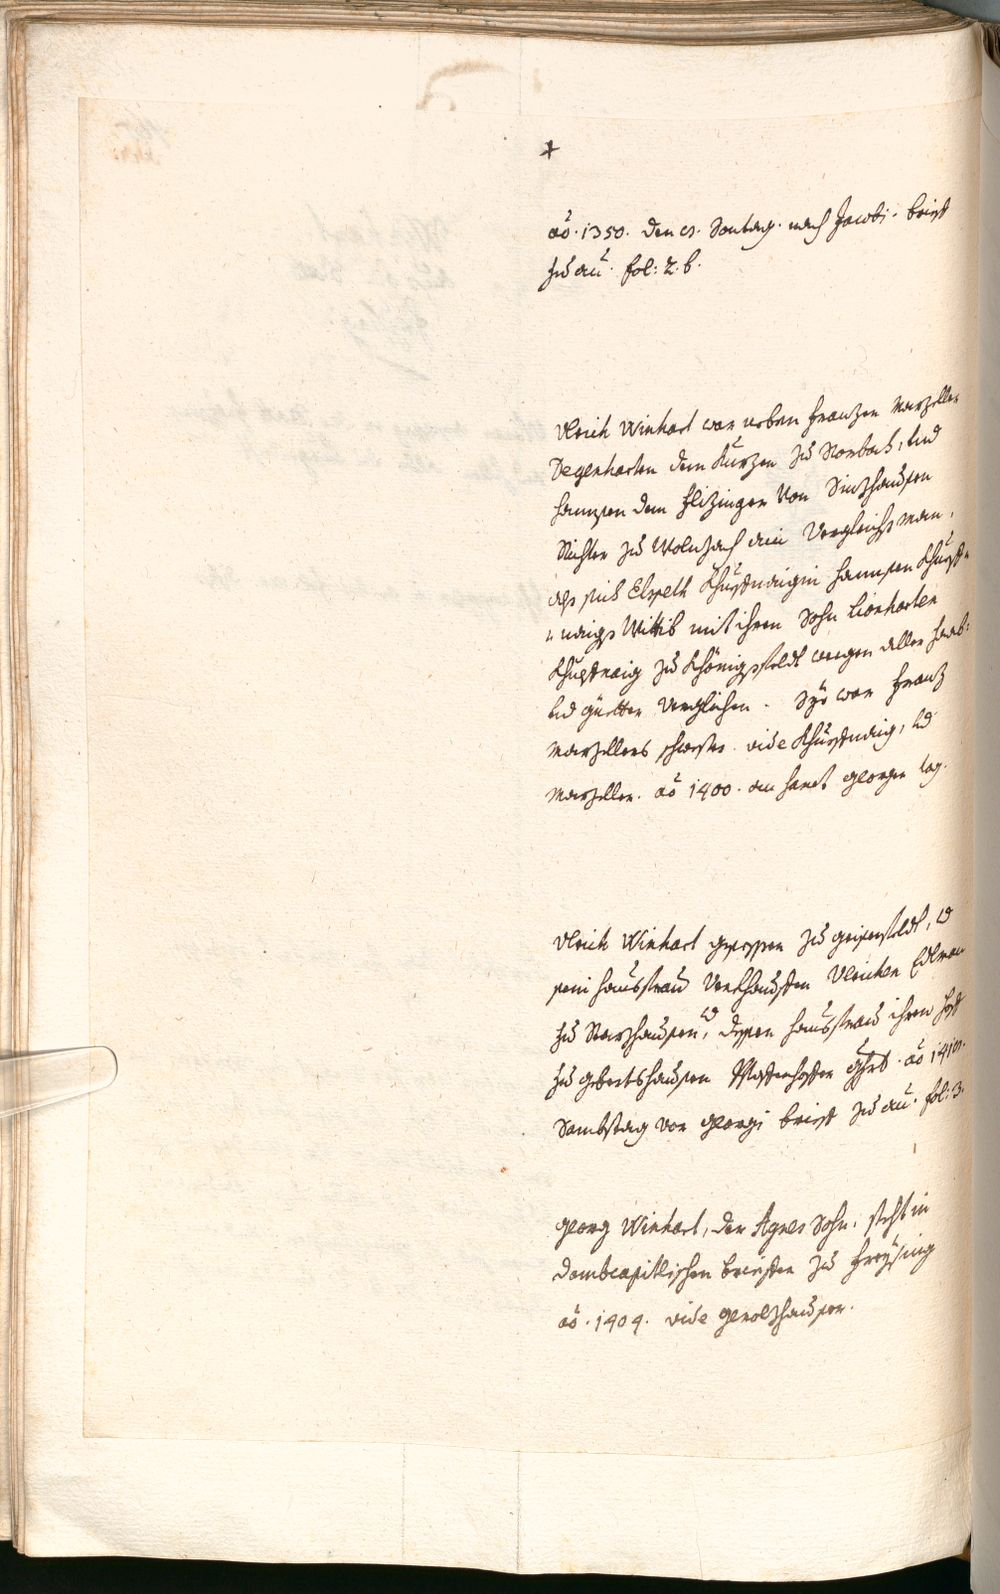 +
ao. 1350. den es. Sontag. nach Jacobi. brieff
zu au. fol: 2. b.
Ulrich Winhart war neben Franzen Marzeller
Degenharten dem Kurzen zu Norbach, und
Hannsen dem Flizinger von Sinzhausen
Richter zu Wolnzach ain Vergleichs man,
als sich Elspeth Khustnaigin Hannsen Khust-
naigs Wittib mit ihren Sohn Lienharten
Khustnaig zu Khönigsfeldt wegen aller haab:
und güetter verglichen. Sye war Franz
Marzellers schwester. vide Khustnaig, und
Marzeller. ao 1400. an Sanct Georgen tag.
Ulrich Winhart gesessen zu geisenfeldt, und
sein hausfrau verkhaufften Ulrichen Edlman
zu Narzhausen, und dessen hausfrau ihren hoff
zu gebertshausen ao
Sambstag vor Georgi brieff zu au. fol: 3.
Georg Winhart, der Agnes Sohn, steht in
Dombcapitlischen brieffen zu Freysing
ao. 1404. vide Geroltzhauser.